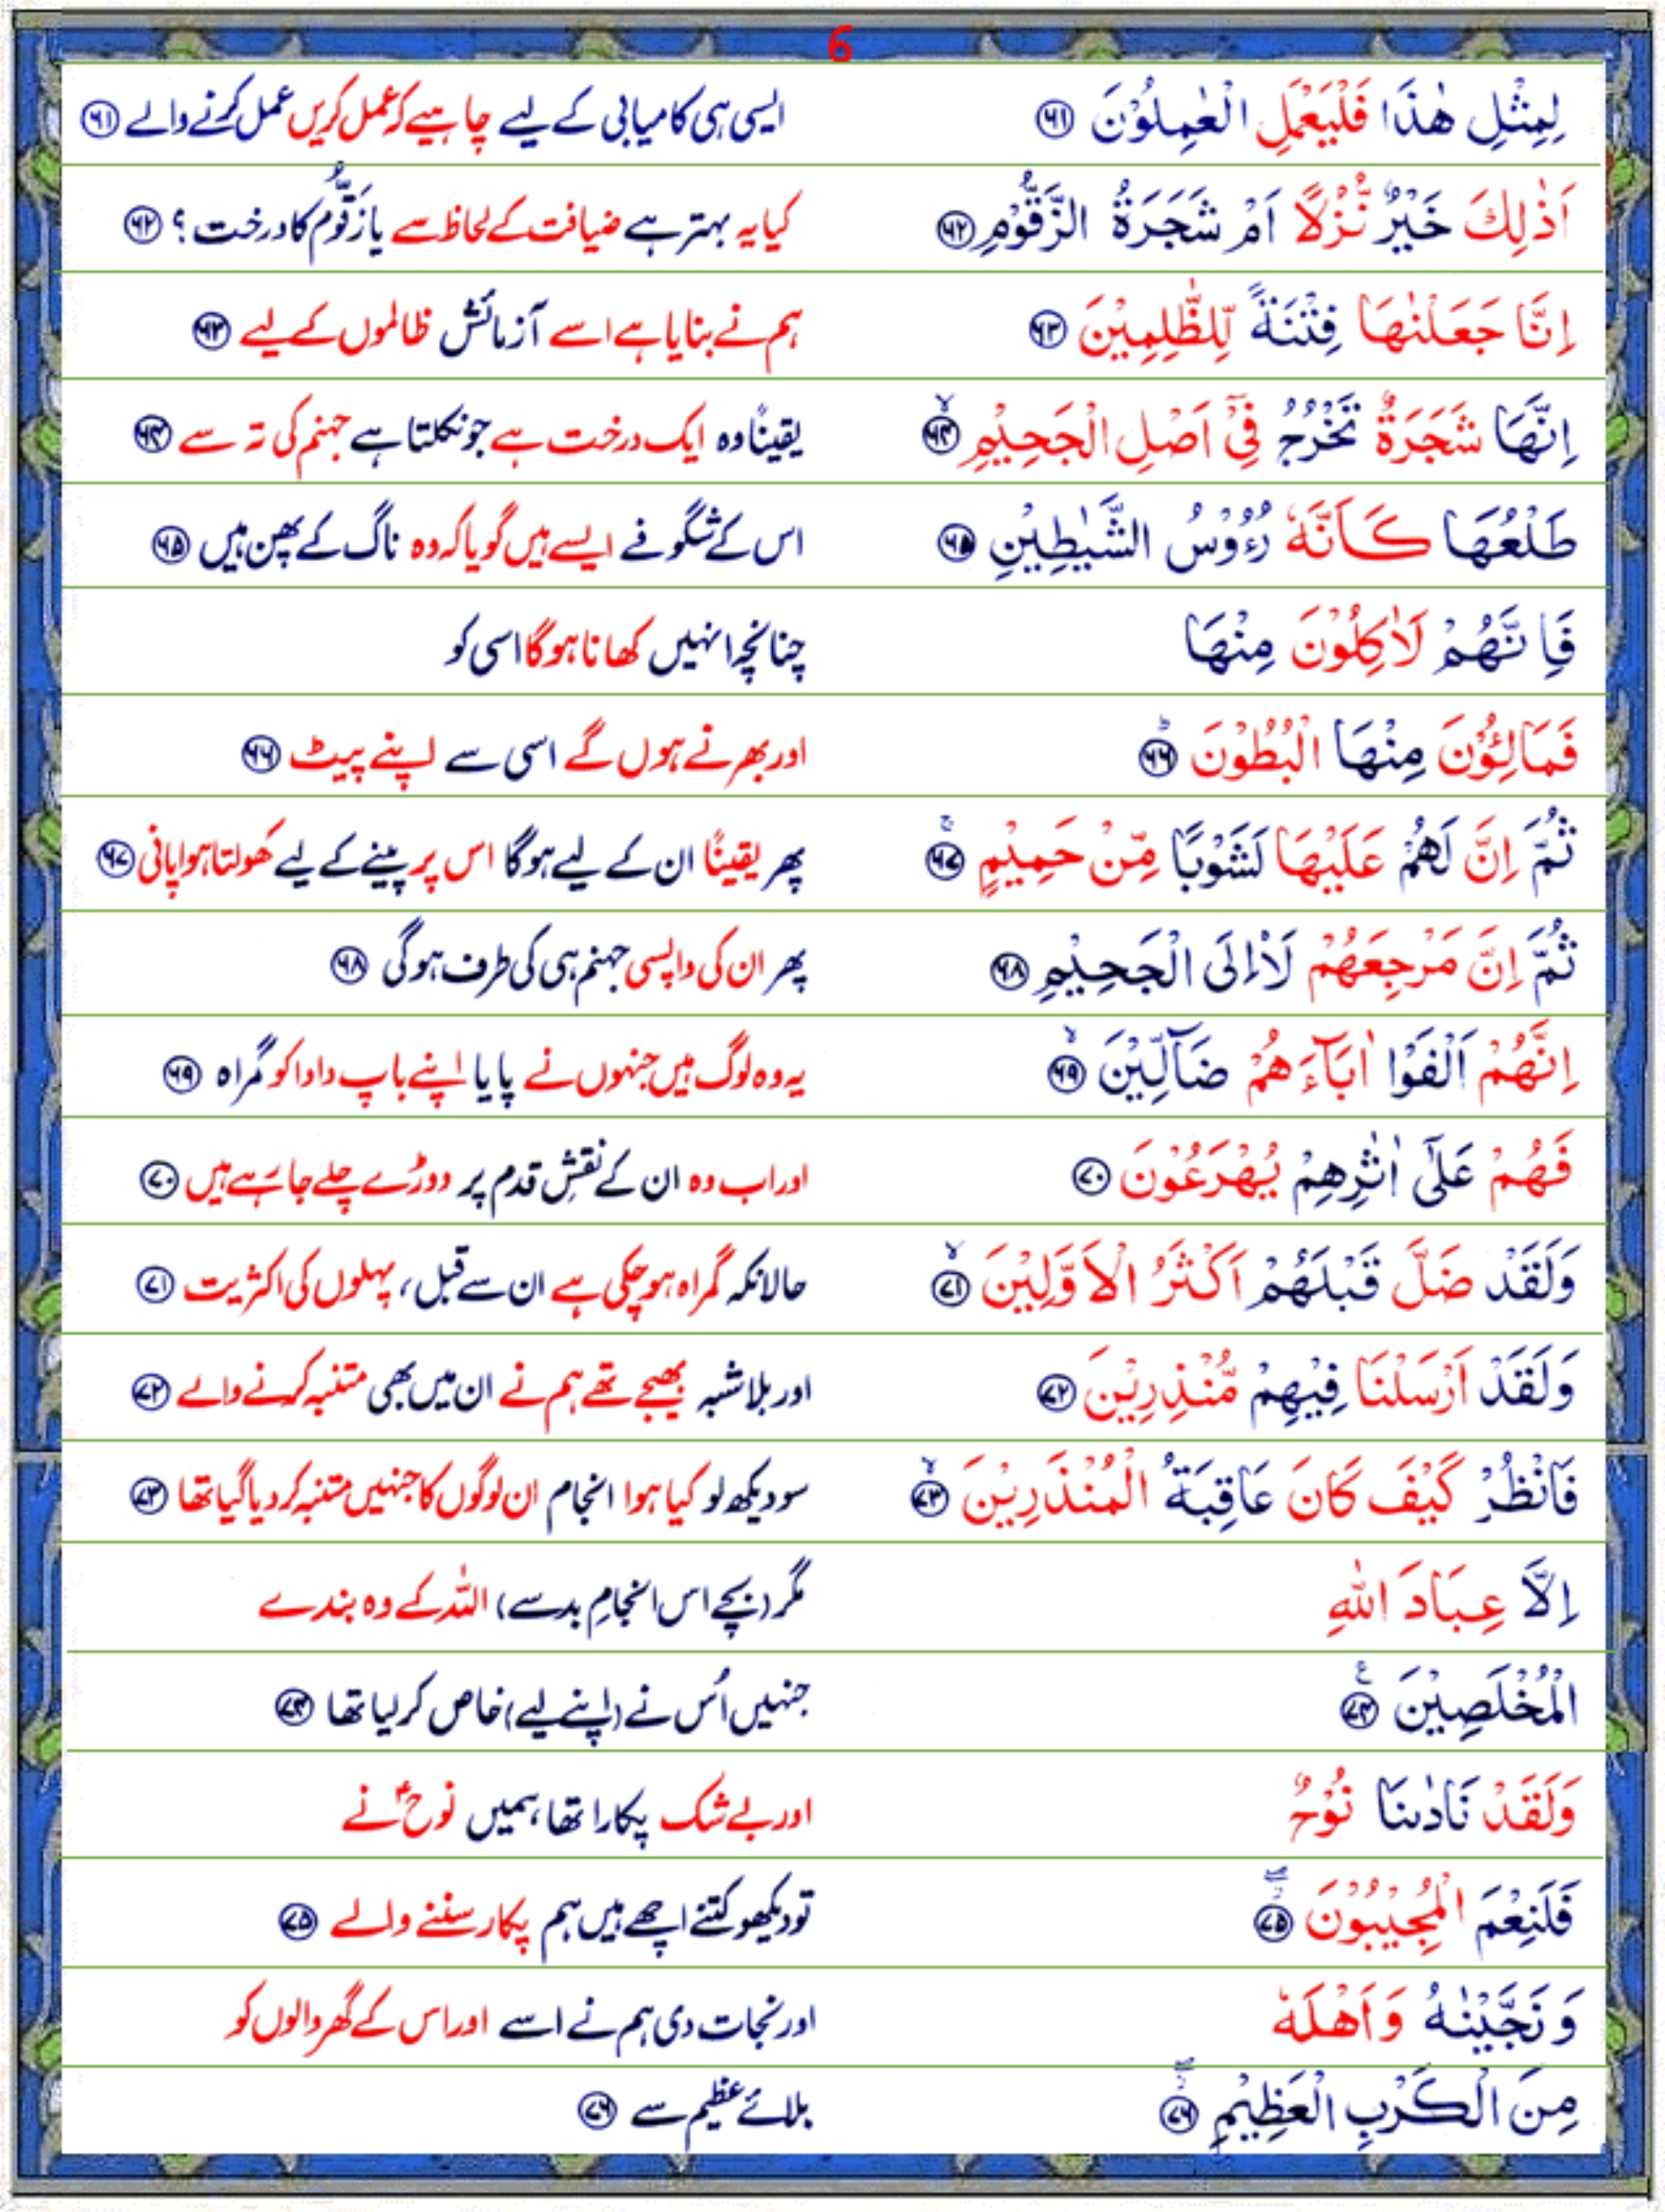 6
لِمِثْلِ هٰذَا فَلْيَعْمَلِ الْعٰمِلُوْنَ ﴿۶۱﴾ ایسی ہی کامیابی کے لیے چاہیے کہ عمل کریں عمل کرنے والے ﴿۶۱﴾
اَذٰلِكَ خَيْرٌ نُّزُلًا اَمْ شَجَرَةُ الزَّقُّوْمِ ﴿۶۲﴾ کیا یہ بہتر ہے ضیافت کے لحاظ سے یا زَقُّوم کا درخت ؟ ﴿۶۲﴾
اِنَّا جَعَلْنٰهَا فِتْنَةً لِّلظّٰلِمِيْنَ ﴿۶۳﴾ ہم نے بنایا ہے اسے آزمائش ظالموں کے لیے ﴿۶۳﴾
اِنَّهَا شَجَرَةٌ تَخْرُجُ فِيْٓ اَصْلِ الْجَحِيْمِ ﴿۶۴﴾ۙ یقیناً وہ ایک درخت ہے جو نکلتا ہے جہنم کی تہ سے ﴿۶۴﴾
طَلْعُهَا كَاَنَّهٗ رُءُوْسُ الشَّيٰطِيْنِ ﴿۶۵﴾ اس کے شگوفے ایسے ہیں گویا کہ وہ ناگ کے پھن ہیں ﴿۶۵﴾
فَاِنَّهُمْ لَاٰكِلُوْنَ مِنْهَا چنانچہ انہیں کھانا ہوگا اسی کو
فَمَالِـُٔوْنَ مِنْهَا الْبُطُوْنَ ﴿۶۶﴾ؕ اور بھرنے ہوں گے اسی سے اپنے پیٹ ﴿۶۶﴾
ثُمَّ اِنَّ لَهُمْ عَلَيْهَا لَشَوْبًا مِّنْ حَمِيْمٍ ﴿۶۷﴾ۚ پھر یقیناً ان کے لیے ہوگا اس پر پینے کے لیے کھولتا ہوا پانی ﴿۶۷﴾
ثُمَّ اِنَّ مَرْجِعَهُمْ لَا۟اِلَى الْجَحِيْمِ ﴿۶۸﴾ پھر ان کی واپسی جہنم ہی کی طرف ہوگی ﴿۶۸﴾
اِنَّهُمْ اَلْفَوْا اٰبَآءَهُمْ ضَآلِّيْنَ ﴿۶۹﴾ۙ یہ وہ لوگ ہیں جنہوں نے پایا اپنے باپ دادا کو گمراہ ﴿۶۹﴾
فَهُمْ عَلٰٓى اٰثٰرِهِمْ يُهْرَعُوْنَ ﴿۷۰﴾ اور اب وہ ان کے نقشِ قدم پر دوڑے چلے جا رہے ہیں ﴿۷۰﴾
وَلَقَدْ ضَلَّ قَبْلَهُمْ اَكْثَرُ الْاَوَّلِيْنَ ﴿۷۱﴾ۙ حالانکہ گمراہ ہو چکی ہے ان سے قبل، پہلوں کی اکثریت ﴿۷۱﴾
وَلَقَدْ اَرْسَلْنَا فِيْهِمْ مُّنْذِرِيْنَ ﴿۷۲﴾ اور بلاشبہ بھیجے تھے ہم نے ان میں بھی متنبہ کرنے والے ﴿۷۲﴾
فَانْظُرْ كَيْفَ كَانَ عَاقِبَةُ الْمُنْذَرِيْنَ ﴿۷۳﴾ۙ سو دیکھ لو کیا ہوا انجام ان لوگوں کا جنہیں متنبہ کر دیا گیا تھا ﴿۷۳﴾
اِلَّا عِبَادَ اللّٰهِ مگر (بچے اس انجامِ بد سے) اللّٰہ کے وہ بندے
الْمُخْلَصِيْنَ ﴿۷۴﴾ع جنہیں اُس نے (اپنے لیے) خاص کر لیا تھا ﴿۷۴﴾
وَلَقَدْ نَادٰىنَا نُوْحٌ اور بے شک پکارا تھا، ہمیں نوحؑ نے
فَلَنِعْمَ الْمُجِيْبُوْنَ ﴿۷۵﴾ۖ تو دیکھو کتنے اچھے ہیں ہم پکار سننے والے ﴿۷۵﴾
وَنَجَّيْنٰهُ وَاَهْلَهٗ اور نجات دی ہم نے اسے اور اس کے گھر والوں کو
مِنَ الْكَرْبِ الْعَظِيْمِ ﴿۷۶﴾ۖ بلائے عظیم سے ﴿۷۶﴾